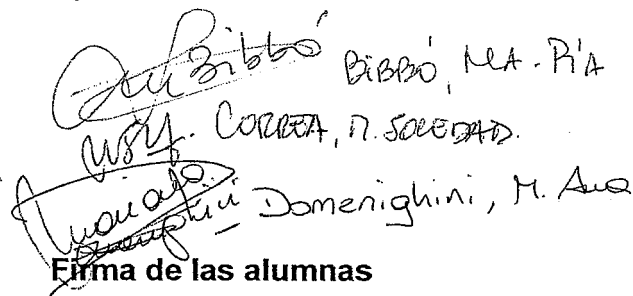 Bibbó BIBBÓ, MA. PÍA
CORREA, M. SOLEDAD.
Domenighini, M. Ana
Firma de las alumnas